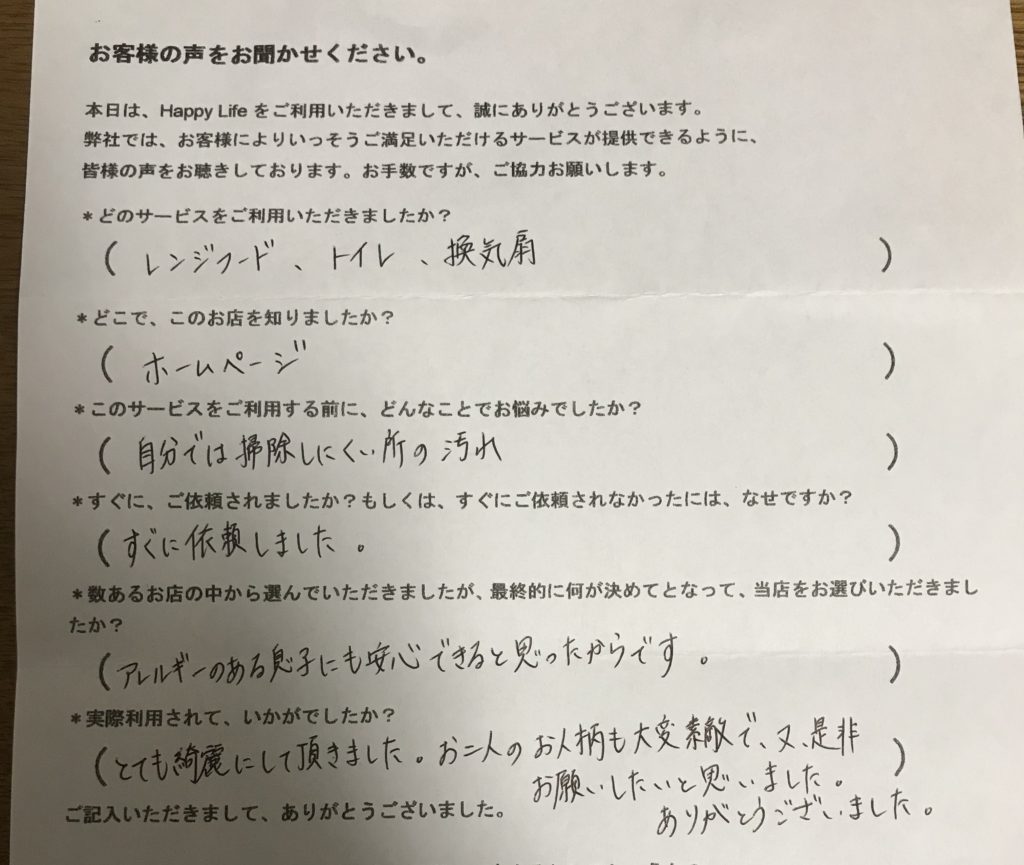 お客様の声をお聞かせください。
本日は、Happy Life をご利用いただきまして、誠にありがとうございます。
弊社では、お客様によりいっそうご満足いただけるサービスが提供できるように、
皆様の声をお聴きしております。お手数ですが、ご協力お願いします。
＊どのサービスをご利用いただきましたか？
（レンジフード、トイレ、換気扇）
＊どこで、このお店を知りましたか？
（ホームページ）
＊このサービスをご利用する前に、どんなことでお悩みでしたか？
（自分では掃除しにくい所の汚れ）
＊すぐに、ご依頼されましたか？もしくは、すぐにご依頼されなかったには、なせですか？
（すぐに依頼しました。）
＊数あるお店の中から選んでいただきましたが、最終的に何が決めてとなって、当店をお選びいただきまし
たか？
（アレルギーのある息子にも安心できると思ったからです。）
＊実際利用されて、いかがでしたか？
（とても綺麗にして頂きました。お二人のお人柄も大変素敵で、又、是非
お願いしたいと思いました。）
ありがとうございました。
ご記入いただきまして、ありがとうございました。